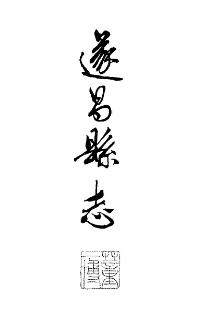 遂昌縣志